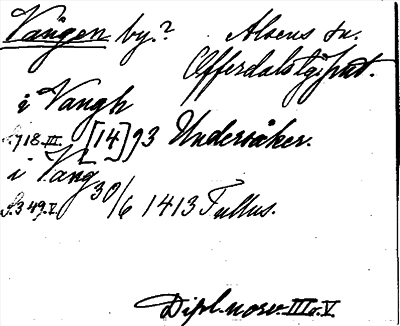 Vången by.? Alsens sn.
Offerdals tgsput.
i Vangh
S. 718. III. [14]93 Undersåker.
i Vang
S. 349. V. 30/6 1413 Tullus.
Dipl. norv. III o. V